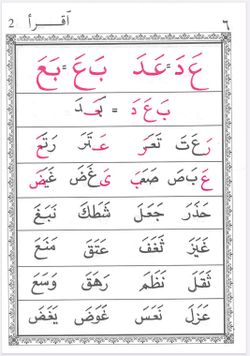 ٦ اقرأ 2
عَ دَ = عَدَ بَ عَ = بَعَ
بَ عَ دَ = بَعَدَ
رَ عَ تَ تَعَرَ عَتَرَ رَتَعَ
عَ بَ صَ صَعَبَ يَ غَ ضَ غَيَضَ
حَذَرَ جَعَلَ شَطَكَ نَبَغَ
غَيَزَ ثَغَفَ عَتَقَ مَنَعَ
ثَقَلَ نَظَمَ رَهَقَ وَسَعَ
عَزَلَ نَعَسَ غَوَضَ يَغَضَ